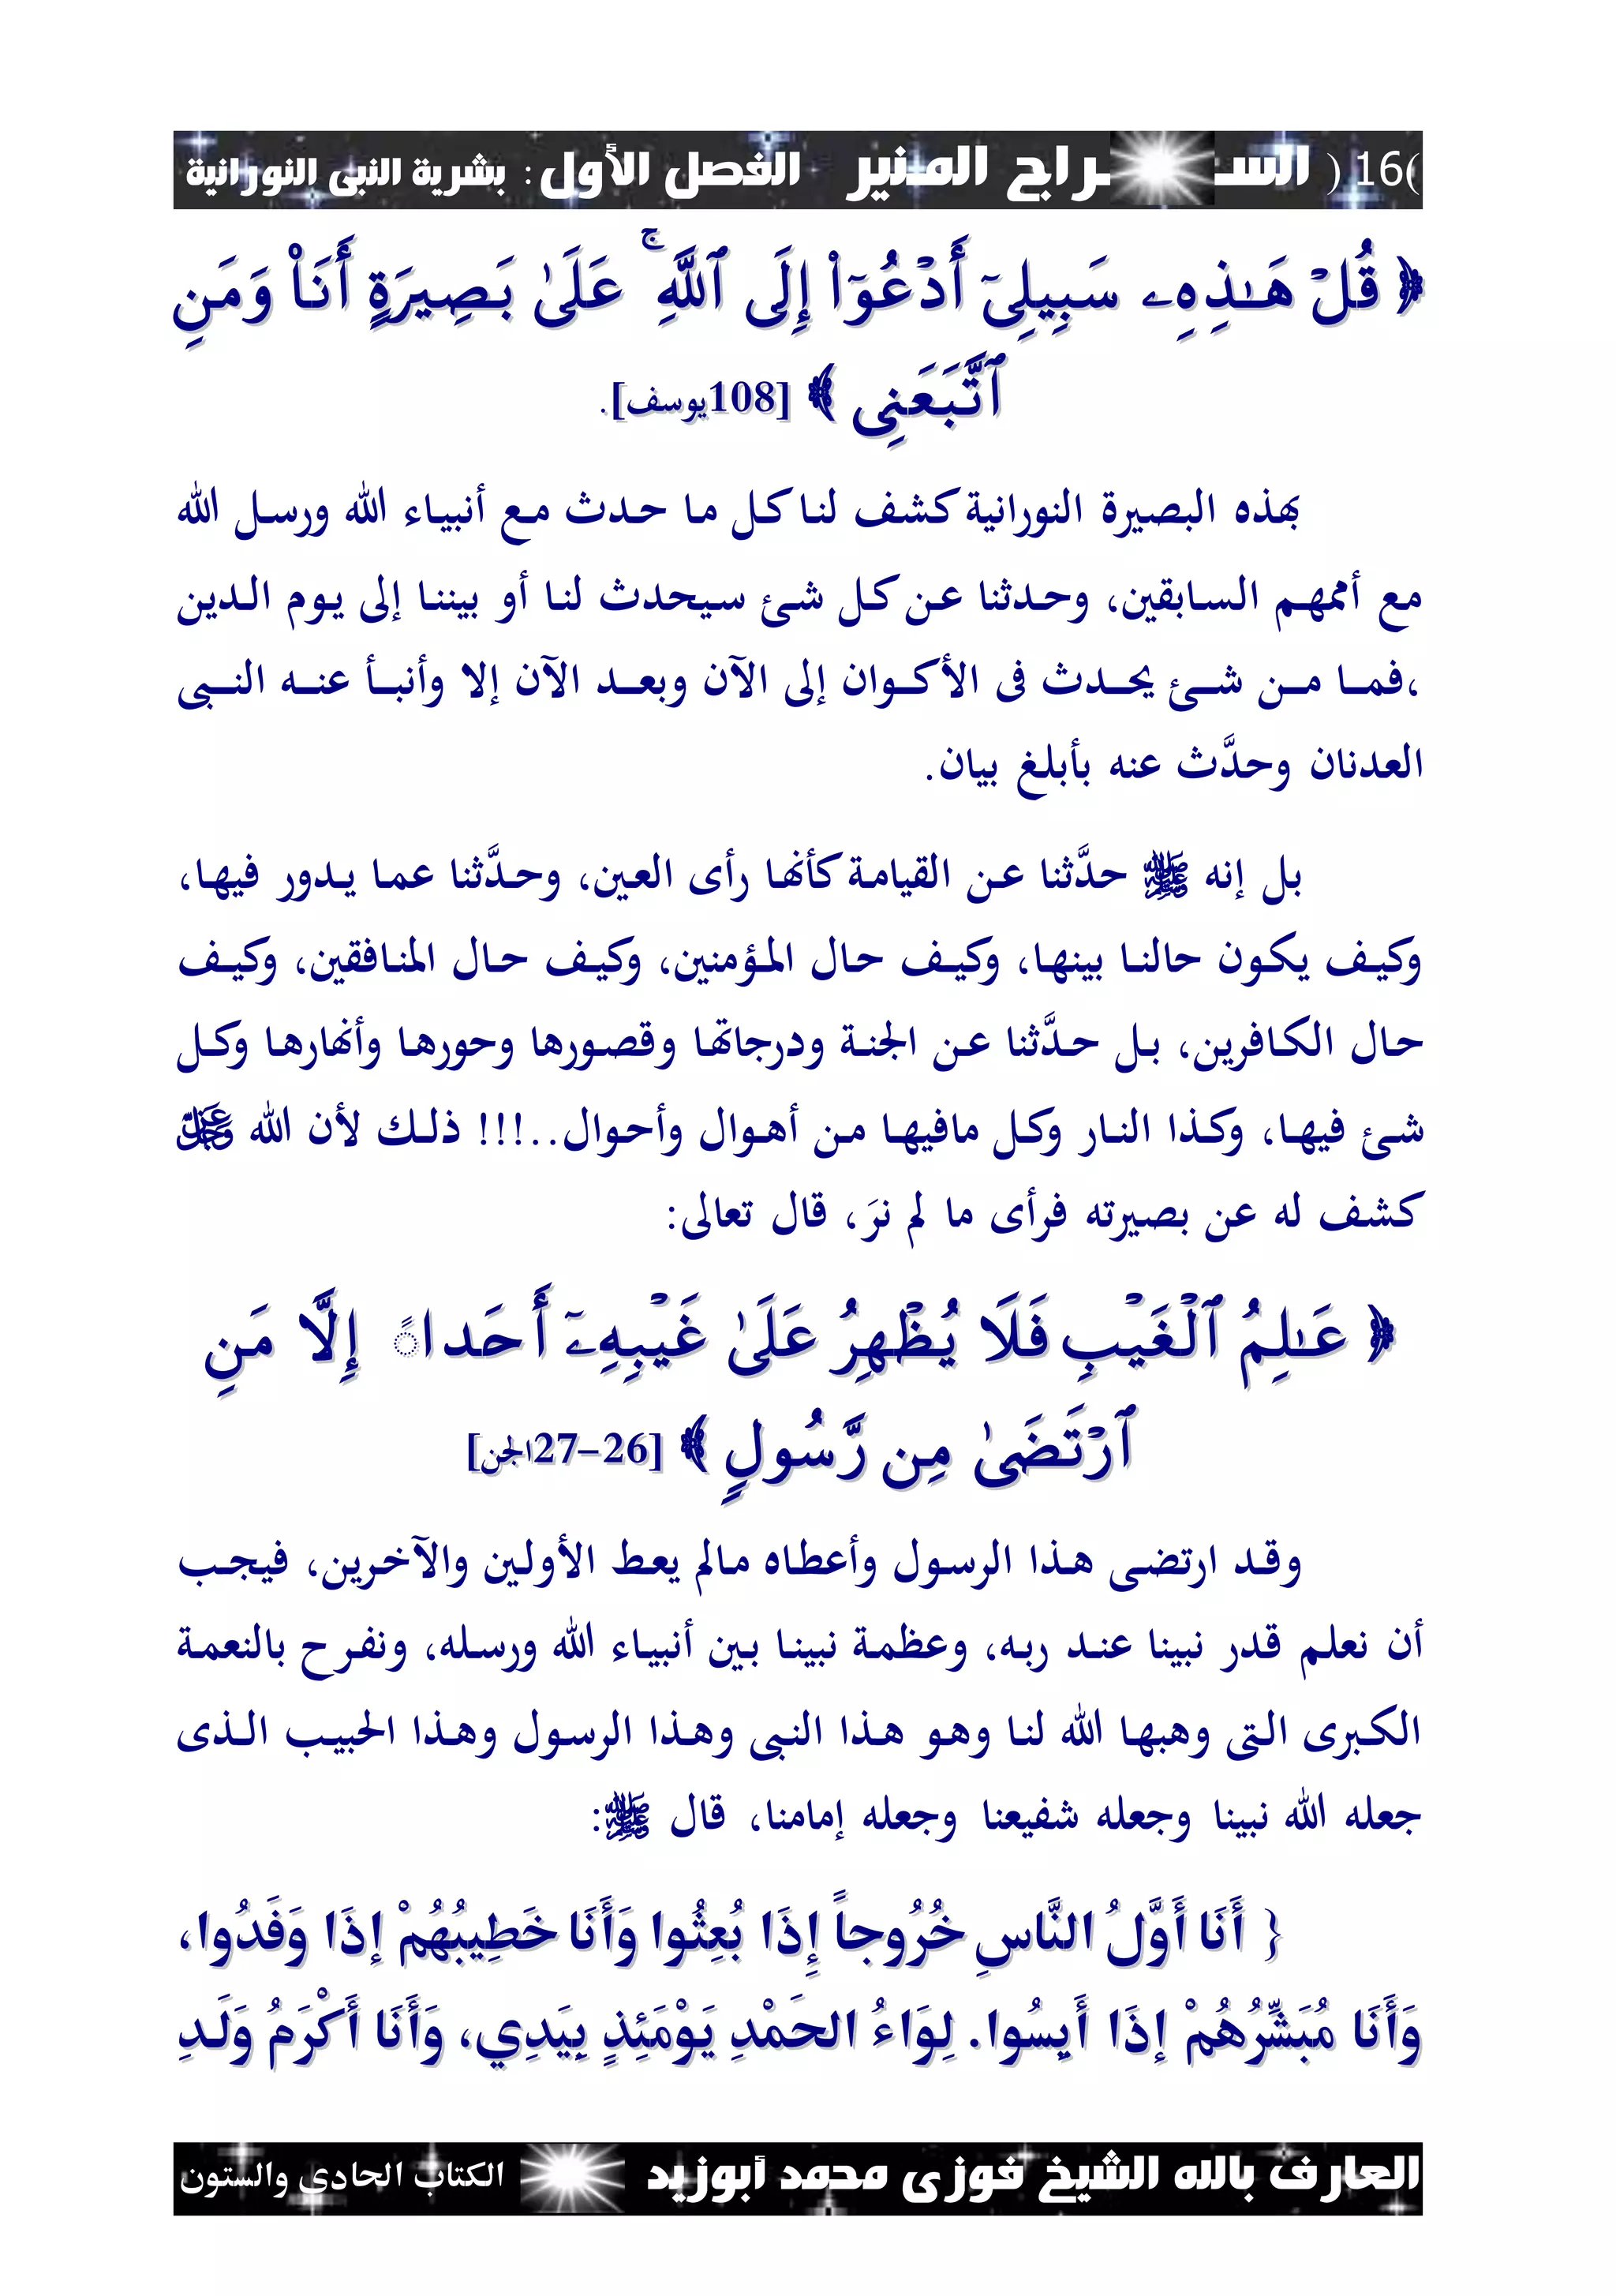 (16) الســراج المــنير الفصل الأول: بشرية النبى النورانية
﴿ قُلْ هَـٰذِهِۦ سَبِيلِىٓ أَدْعُوٓا۟ إِلَى ٱللَّهِ ۚ عَلَىٰ بَصِيرَةٍ أَنَا۠ وَمَنِ
ٱتَّبَعَنِى ﴾ [108يوسف].
بهذه البصيرة النورانية كشف لنا كل ما حدث مع أنبياء الله ورسل الله
مع أممهم السابقين، وحدثنا عن كل شئ سيحدث لنا أو بيننا إلى يوم الدين
،فما من شئ يحدث فى الأكوان إلى الآن وبعد الآن إلا وأنبأ عنه النبى
العدنان وحدَّث عنه بأبلغ بيان.
بل إنه ﷺ حدَّثنا عن القيامة كأنها رأى العين، وحدَّثنا عما يدور فيها،
وكيف يكون حالنا بينها، وكيف حال المؤمنين، وكيف حال المنافقين، وكيف
حال الكافرين، بل حدَّثنا عن الجنة ودرجاتها وقصورها وحورها وأنهارها وكل
شئ فيها، وكذا النار وكل مافيها من أهوال وأحوال..!!! ذلك لأن الله عز وجل
كشف له عن بصيرته فرأى ما لم نرَ، قال تعالى:
﴿ عَـٰلِمُ ٱلْغَيْبِ فَلَا يُظْهِرُ عَلَىٰ غَيْبِهِۦٓ أَحَداً إِلَّا مَنِ
ٱرْتَضَىٰ مِن رَّسُولٍ ﴾ [26-27الجن]
وقد ارتضى هذا الرسول وأعطاه مالم يعط الأولين والآخرين، فيجب
أن نعلم قدر نبينا عند ربه، وعظمة نبينا بين أنبياء الله ورسله، ونفرح بالنعمة
الكبرى التى وهبها الله لنا وهو هذا النبى وهذا الرسول وهذا الحبيب الذى
جعله الله نبينا وجعله شفيعنا وجعله إمامنا، قال ﷺ:
{ أَنَا أَوَّلُ النَّاسِ خُرُوجاً إِذَا بُعِثُوا وَأَنَا خَطِيبُهُمْ إذَا وَفَدُوا،
وَأَنَا مُبَشِّرُهُمْ إذَا أَيِسُوا. لِوَاءُ الحَمْدِ يَوْمَئِذٍ بِيَدِي، وَأَنَا أَكْرَمُ وَلَدِ
العارف بالله الشيخ فوزى محمد أبوزيد الكتاب الحادى والستون